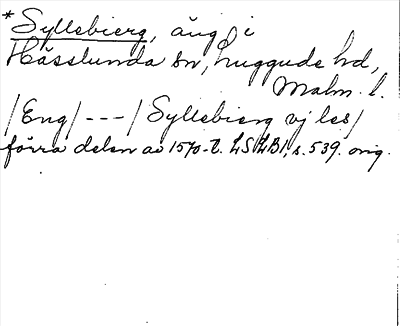 *Syllebierg, äng i
Hässlunda sn, Luggude hd,
Malm. l.
/Eng/ --- / Syllebierg vj les/
förra delen av 1570-t. LSLB1, s. 539. orig.